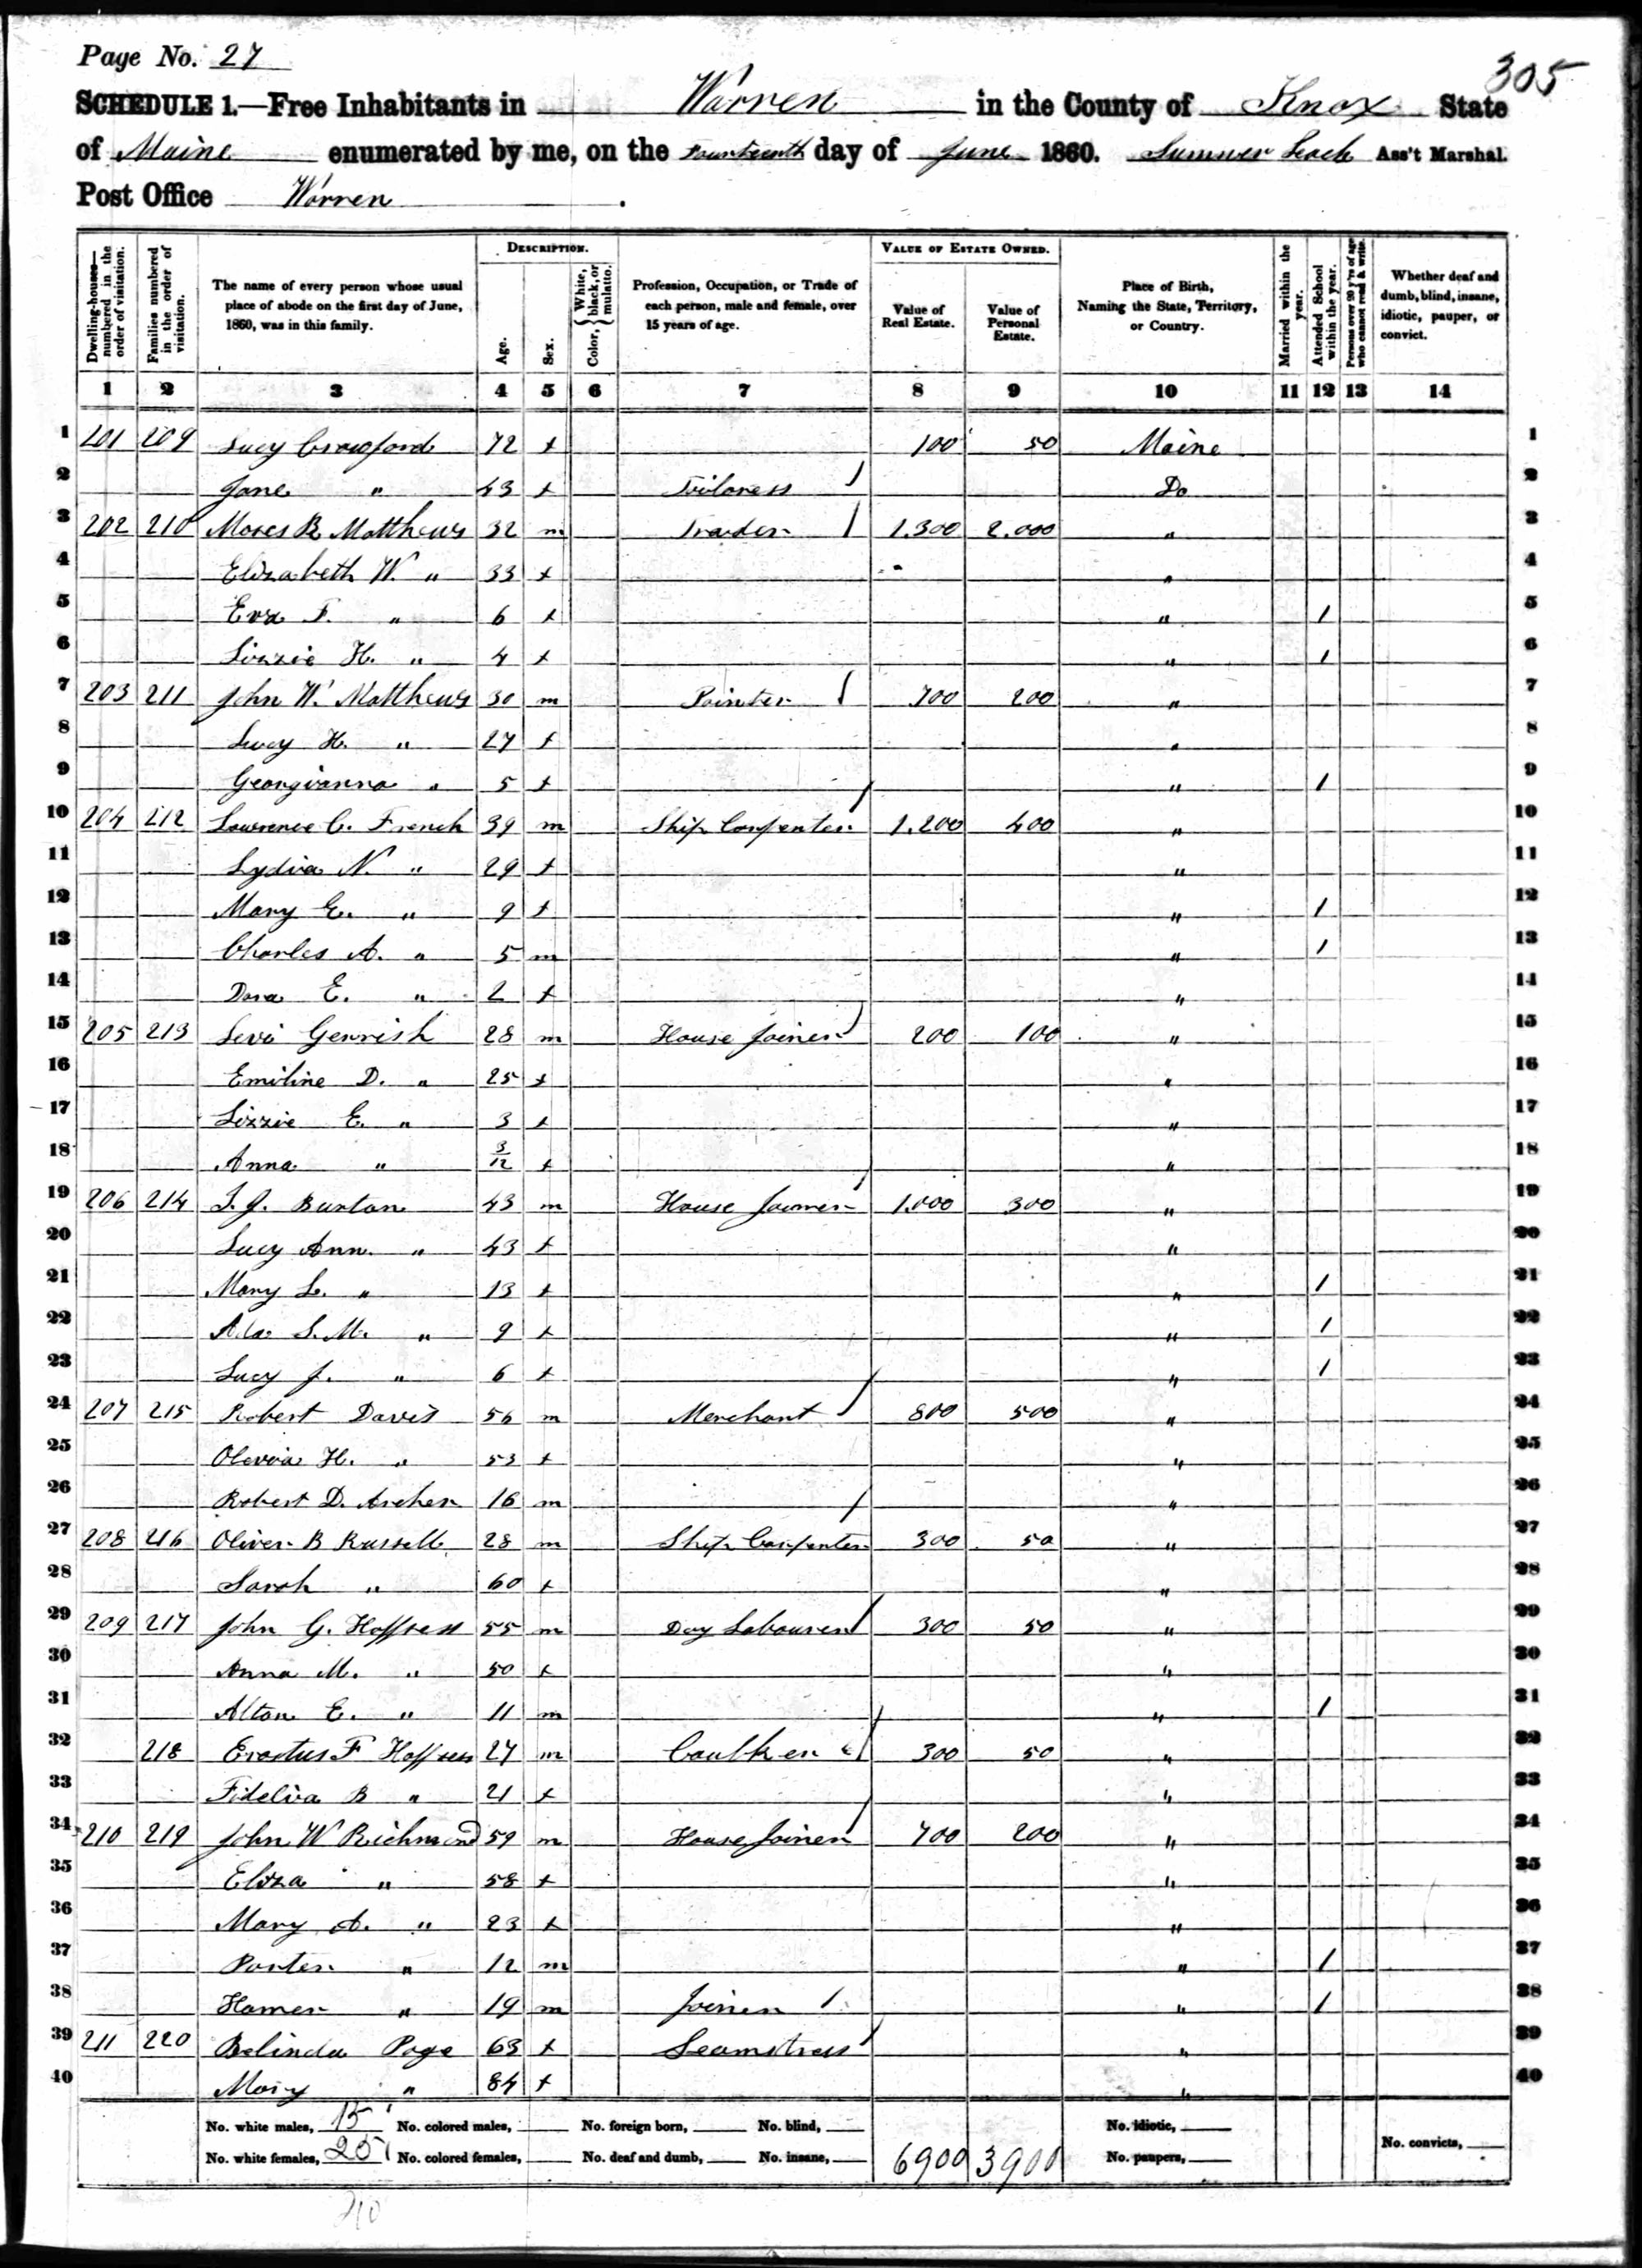 Page No. 27
305
SCHEDULE 1.—Free Inhabitants in Warren in the County of Knox State
of Maine enumerated by me, on the Fourteenth day of June 1860. Sumner Leach Ass't Marshal.
Post Office Warren.
Dwelling-houses—numbered in the order of visitation.
Families numbered in the order of visitation.
The name of every person whose usual place of abode on the first day of June, 1860, was in this family.
DESCRIPTION.
Age.
Sex.
Color, { White, black, or mulatto.
Profession, Occupation, or Trade of each person, male and female, over 15 years of age.
VALUE OF ESTATE OWNED.
Value of Real Estate.
Value of Personal Estate.
Place of Birth, Naming the State, Territory, or Country.
Married within the year.
Attended School within the year.
Persons over 20 y'rs of age who cannot read & write.
Whether deaf and dumb, blind, insane, idiotic, pauper, or convict.
1 2 3 4 5 6 7 8 9 10 11 12 13 14
1 201 209 Lucy Crawford 72 f 100 50 Maine 1
2 Jane " 43 f Tailoress / Do 2
3 202 210 Moses R. Matthews 32 m Trader / 1.300 2.000 " 3
4 Elizabeth W. " 33 f " 4
5 Eva F. " 6 f " / 5
6 Lizzie H. " 4 f " / 6
7 203 211 John W. Matthews 30 m Painter / 700 200 " 7
8 Lucy H. " 27 f " 8
9 Georgianna " 5 f " / 9
10 204 212 Lawrence C. French 39 m Ship Carpenter / 1.200 400 " 10
11 Lydia N. " 29 f " 11
12 Mary E. " 9 f " / 12
13 Charles A. " 5 m " / 13
14 Dora E. " 2 f " 14
15 205 213 Levi Gerrish 28 m House Joiner / 200 100 " 15
16 Emiline D. " 25 f " 16
17 Lizzie E. " 3 f " 17
18 Anna " 3/12 f " 18
19 206 214 T. J. Burton 43 m House Joiner / 1.000 300 " 19
20 Lucy Ann " 43 f " 20
21 Mary L. " 13 f " / 21
22 Ada S. M. " 9 f " / 22
23 Lucy J. " 6 f " / 23
24 207 215 Robert Davis 56 m Merchant / 800 500 " 24
25 Olevia H. " 53 f " 25
26 Robert D. Archer 16 m " 26
27 208 216 Oliver B Russell 28 m Ship Carpenter / 300 50 " 27
28 Sarah " 60 f " 28
29 209 217 John G. Hoffses 55 m Day Labourer / 300 50 " 29
30 Anna M. " 50 f " 30
31 Alton E. " 11 m " / 31
32 218 Erastus F Hoffses 27 m Caulker / 300 50 " 32
33 Fidelia B " 21 f " 33
34 210 219 John W Richmond 59 m House Joiner / 700 200 " 34
35 Eliza " 58 f " 35
36 Mary A. " 23 f " 36
37 Porter " 12 m " / 37
38 Homer " 19 m Joiner / " / 38
39 211 220 Belinda Page 63 f Seamstress / " 39
40 Mary " 84 f " 40
No. white males, 15 No. colored males, No. foreign born, No. blind, No. idiotic,
No. white females, 25 No. colored females, No. deaf and dumb, No. insane, 6900 3900 No. paupers, No. convicts,